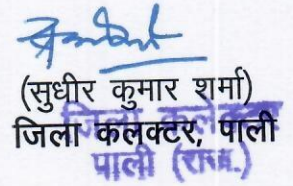 (सुधीर कुमार शर्मा)
जिला कलक्टर, पाली
जिला कलेक्टर
पाली (राज.)